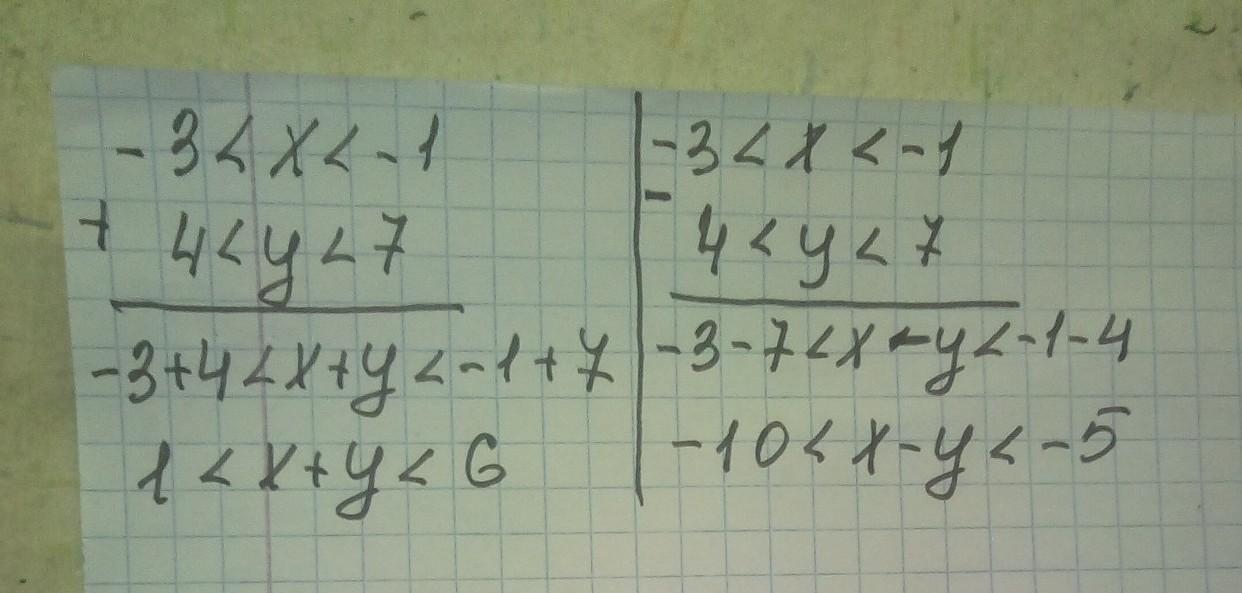 -3 < x < -1
+
4 < y < 7
-3+4 < x+y < -1+7
1 < x+y < 6
-3 < x < -1
-
4 < y < 7
-3-7 < x-y < -1-4
-10 < x-y < -5